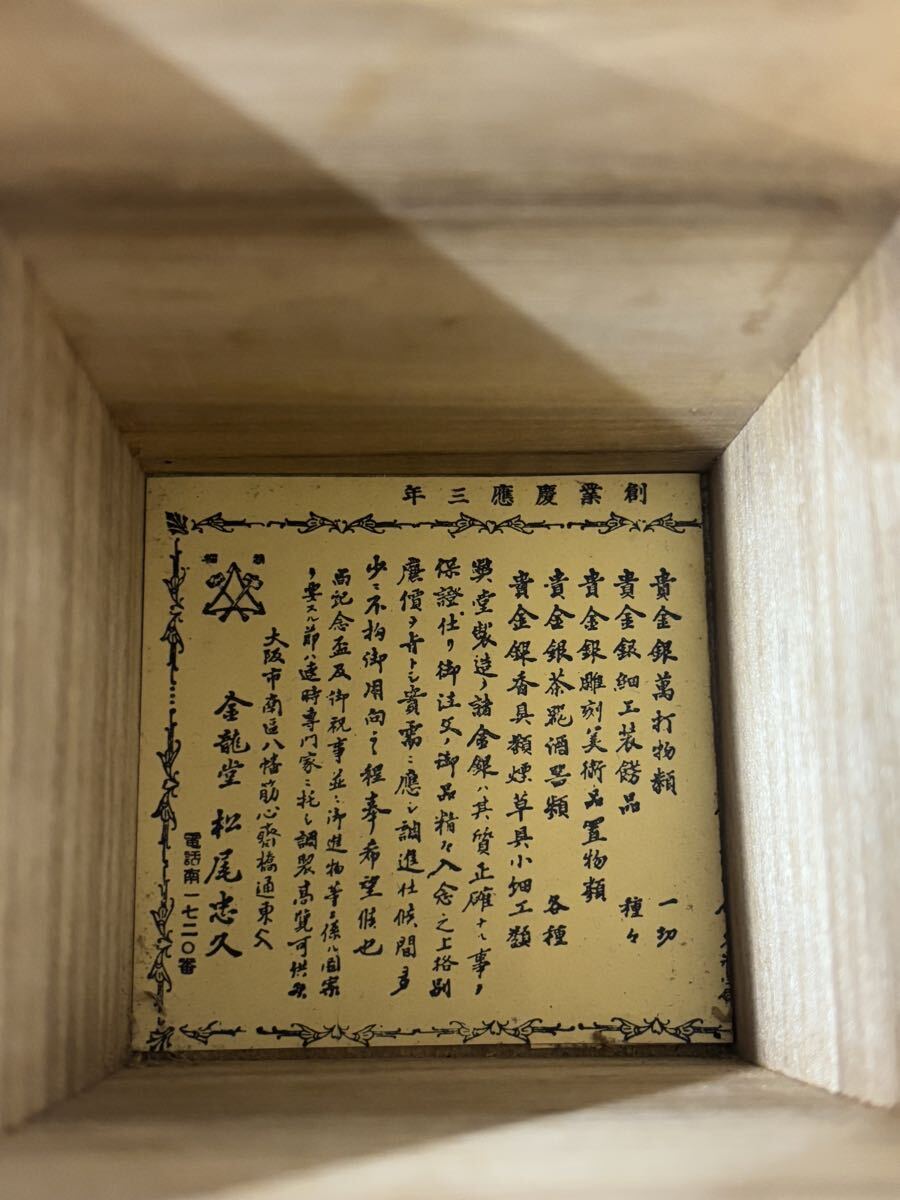 創業慶應三年
貴金銀萬打物類 一切
貴金銀細工装餝品 種々
貴金銀雕刻美術品置物類
貴金銀茶器酒器類 各種
貴金銀香具類煙草具小細工類
弊堂製造ノ諸金銀ハ其質正確ナル事ヲ
保證仕リ御注文ノ御品精々入念之上格別
廉價ヲ旨トシ貴需ニ應シ調進仕候間多
少ニ不拘御用向之程奉希望候也
尚記念盃及御祝事並ニ御進物等ニ係ル図案
ヲ要スル節ハ速時専門家ニ托シ調製高覧可供候
大阪市南區八幡筋心齋橋通東入
金龍堂 松尾忠久
電話南一七二〇番